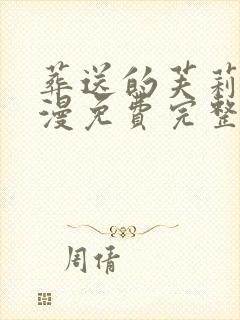 葬送的芙莉
漫免費完整
周倩